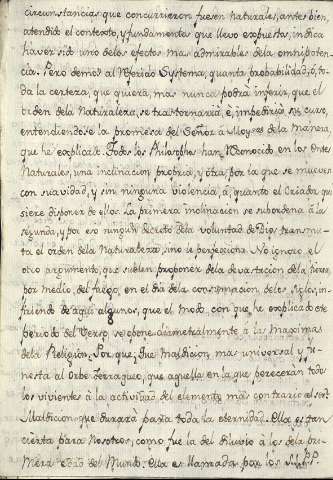 circunstancias que concurrieron fuesen naturales, antes bien,
atendido el contexto, y fundamentos que llevo expuestos, indica
haver sido uno delos efectos mas admirables dela omnipoten-
cia. Pero demos al referido Systema, quanta probabilidad, ô, to-
da la certeza, que quiera, mas nunca podrá inferir, que el
orden dela Naturaleza, se trastornaria, ê, impediria su curso,
entendiendose la promesa del Señor â Moyses dela manera
que he explicado. Todos los Philosophos han reconocido en los Entes
Naturales, una inclinacion propria, y otra por la que se mueven
con suavidad, y sin ninguna violencia, â, quanto el Criador qui-
siere disponer de ellos. La primera inclinacion se subordena â la
segunda, y por eso ningun decreto dela voluntad de Dios transmu-
ta el orden dela Naturaleza, sino le perfecciona. No ignoro el
otro argumento, que suelen proponer dela devastacion dela tierra,
por medio, del fuego, en el dia dela consumacion, delos siglos, in-
firiendo de aqui algunos, que el modo, con que he explicado este
periodo del Verso, se opone diametralmente â las maximas
dela Religion. Por que; Que maldicion, mas universal y fu-
nesta al Orbe Terraqueo, que aquella en la que pereceràn todos
los vivientes â la actividad del elemento mas contrario al ser?
Maldicion que durarà para toda la eternidad. Ella es tan
cierta para Nosotros, como fue la del diluvio â los dela pri-
mera edad del Mundo. Ella es llamada por los SS. PP.